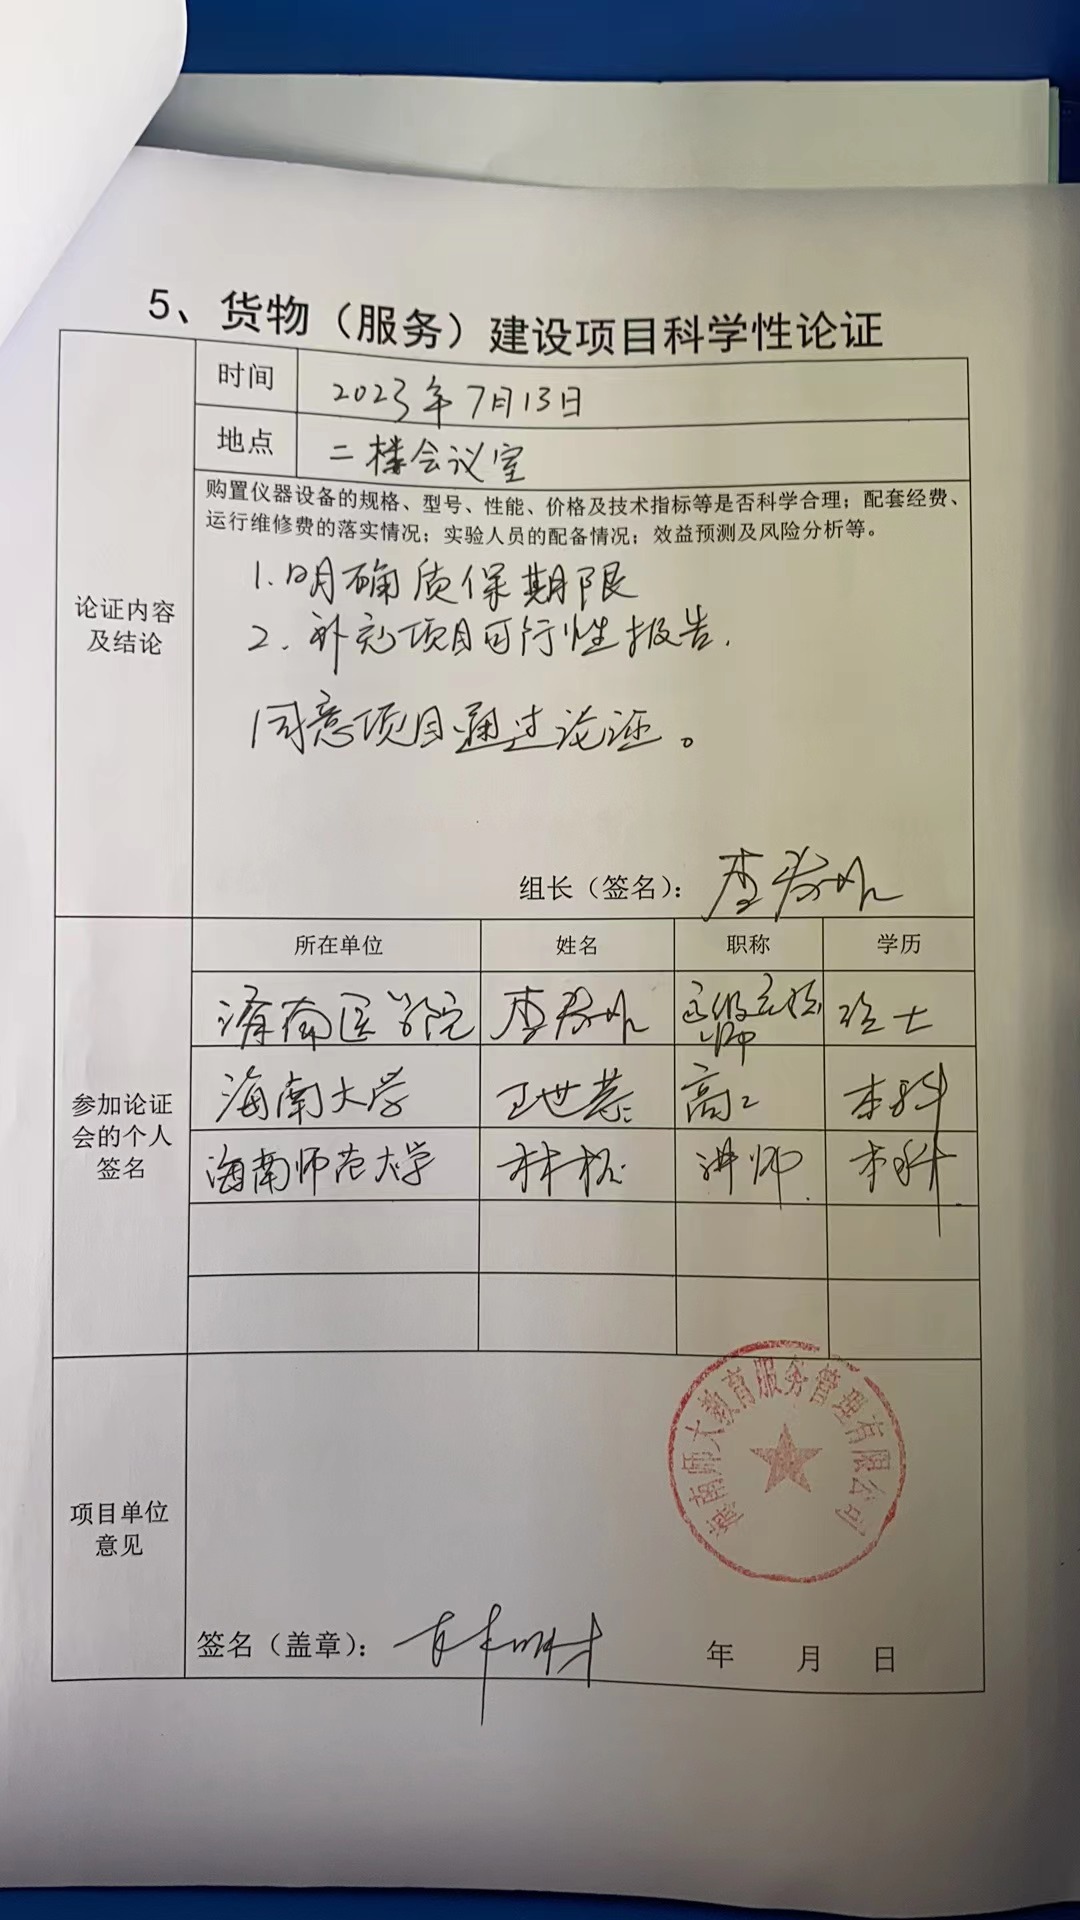 5、货物（服务）建设项目科学性论证
时间
2023年7月13日
地点
二楼会议室
购置仪器设备的规格、型号、性能、价格及技术指标等是否科学合理；配套经费、
运行维修费的落实情况；实验人员的配备情况；效益预测及风险分析等。
论证内容
及结论
1.明确质保期限
2.补充项目可行性报告.
同意项目通过论证。
组长（签名）：李
所在单位 姓名 职称 学历
参加论证
会的个人
签名
海南医学院 李 师 士
海南大学 王世 高工 本科
海南师范大学 林 讲师 本科
项目单位
意见
海南师大教育服务管理有限公司
签名（盖章）：
年 月 日